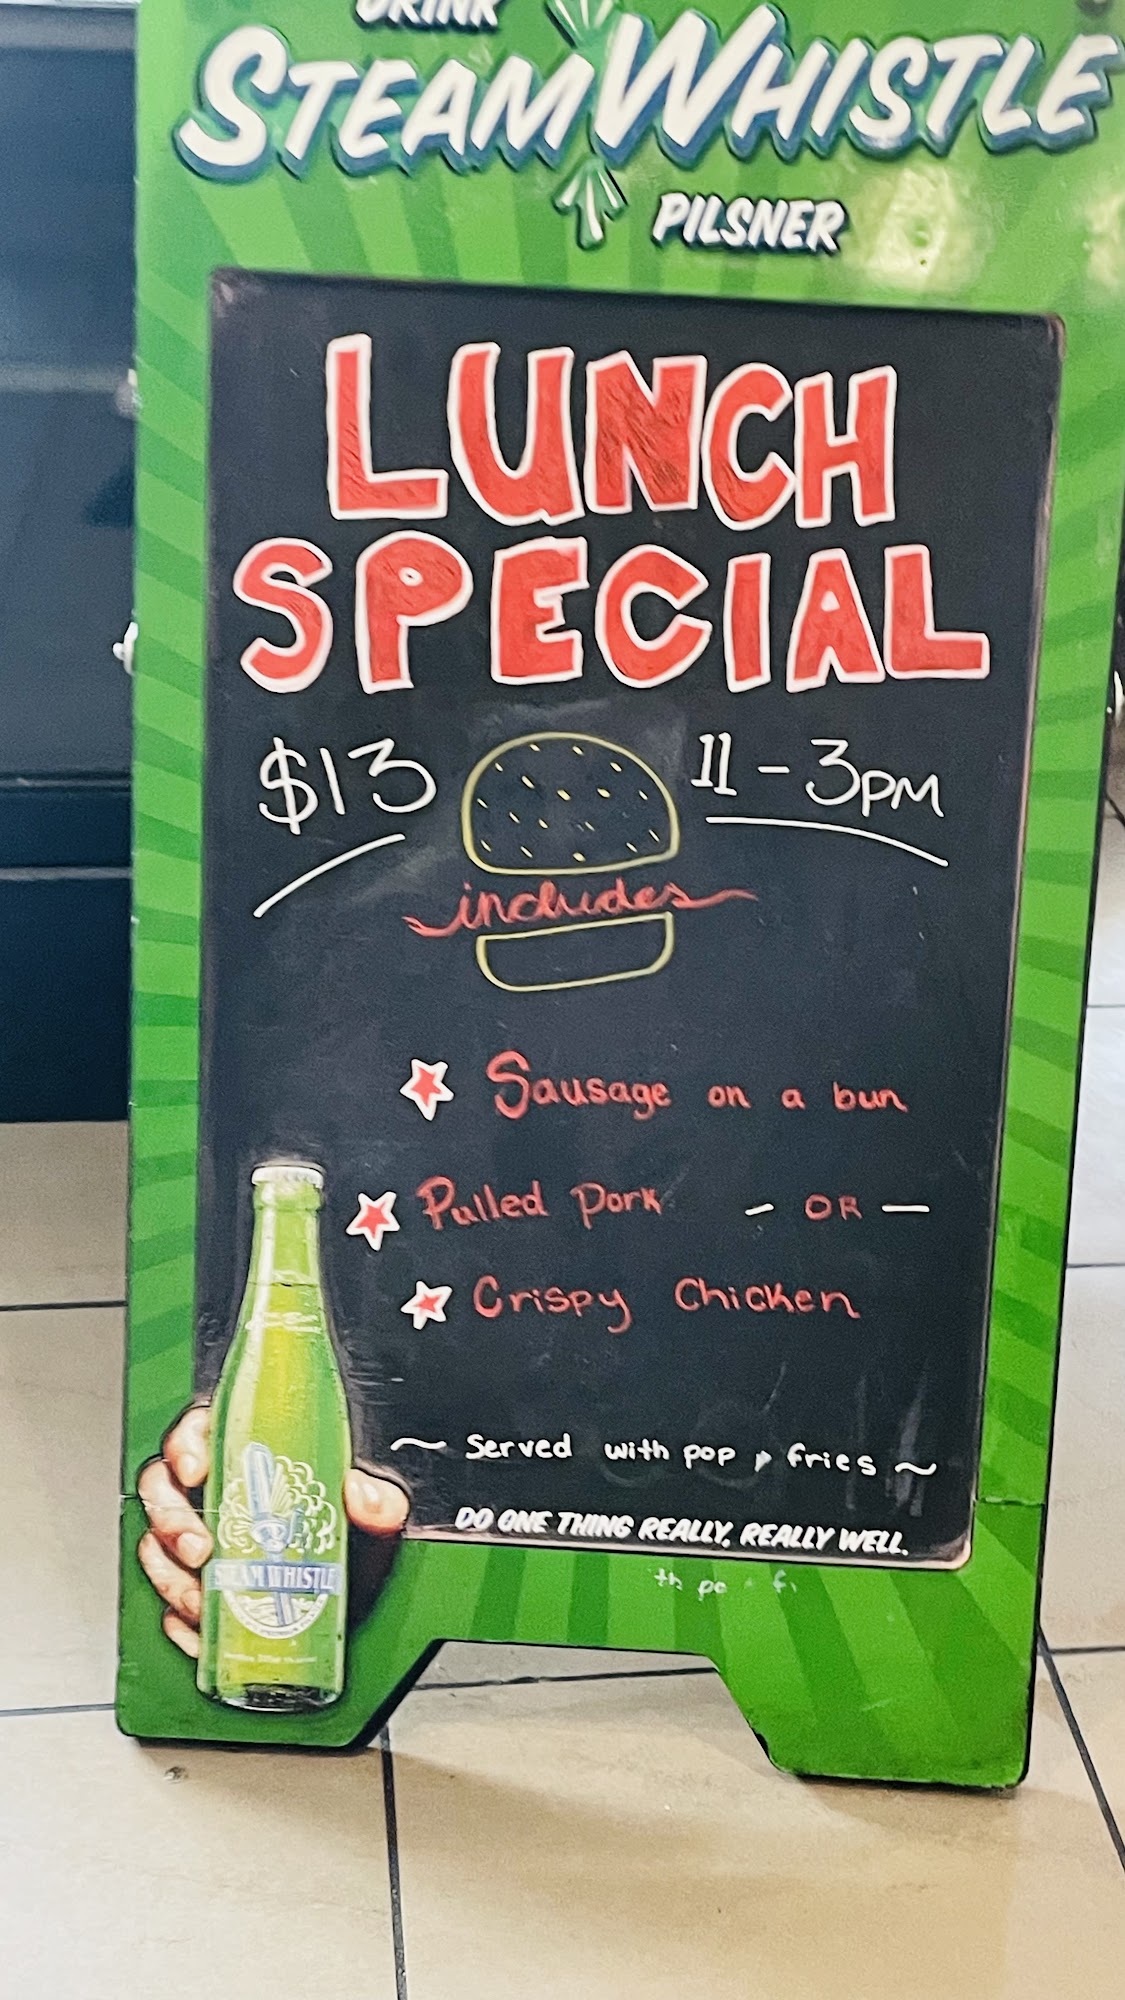 DRINK
STEAM WHISTLE
PILSNER
LUNCH
SPECIAL
$13 11 - 3PM
includes
Sausage on a bun
Pulled Pork - OR -
Crispy Chicken
~ Served with pop & fries ~
DO ONE THING REALLY, REALLY WELL.
STEAM WHISTLE